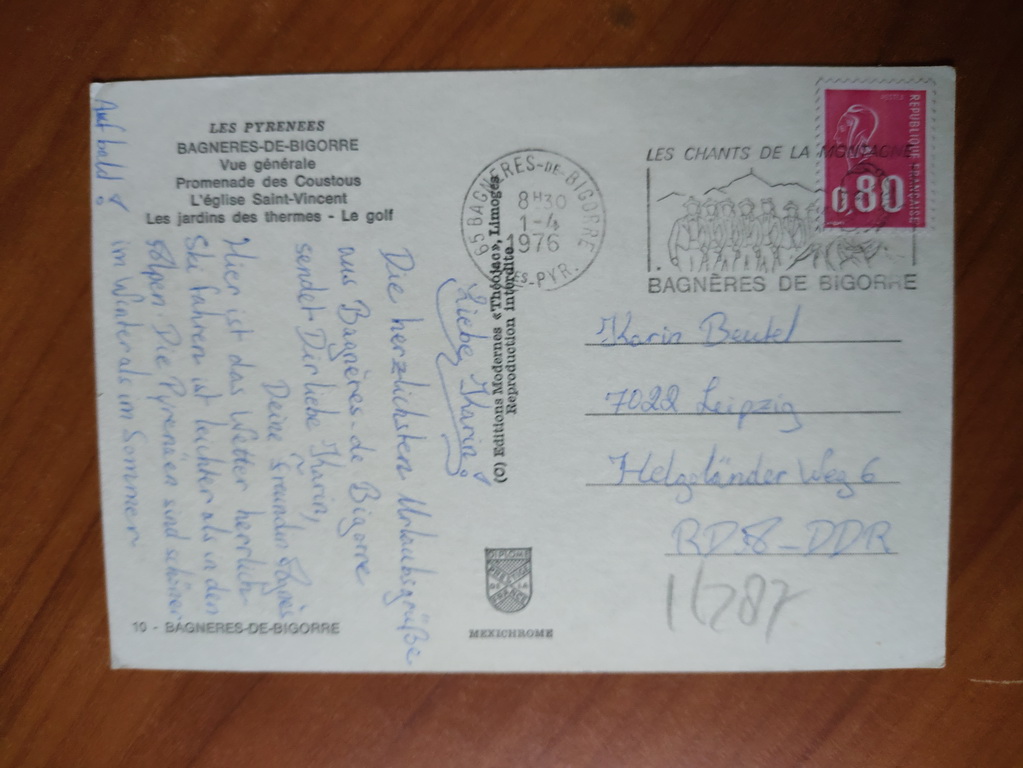 LES PYRENEES
BAGNERES-DE-BIGORRE
Vue générale
Promenade des Coustous
L'église Saint-Vincent
Les jardins des thermes - Le golf
Liebe Karin!
Die herzlichsten Urlaubsgrüße
aus Bagnères-de Bigorre
sendet Dir liebe Karin,
Deine Freundin Agnès
Hier ist das Wetter herrlich
Ski fahren ist leichter als in den
Alpen. Die Pyrenäen sind schöner
im Winter als im Sommer
Auf bald!
10 - BAGNERES-DE-BIGORRE
(C) Editions Modernes «Théojac», Limoges
Reproduction interdite
65 BAGNERES-DE-BIGORRE
8H30
1-4
1976
ES-PYR.
LES CHANTS DE LA MONTAGNE
BAGNÈRES DE BIGORRE
REPUBLIQUE FRANCAISE
0,80
Karin Beutel
7022 Leipzig
Helgoländer Weg 6
RDA-DDR
DE LA
FRANCE
MEXICHROME